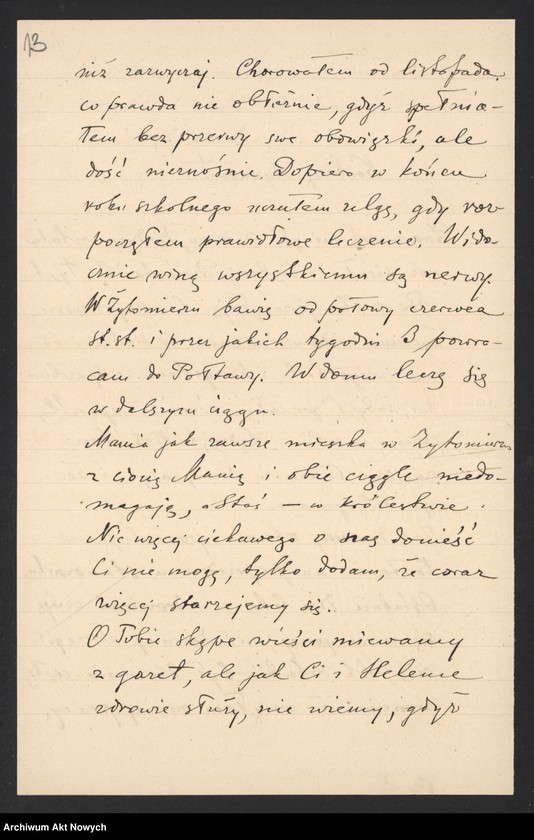 13
niż zazwyczaj. Chorowałem od listopada.
co prawda nie obłożnie, gdyż spełnia-
łem bez przerwy swe obowiązki, ale
dość nieznośnie. Dopiero w końcu
roku szkolnego uczułem ulgę, gdy roz-
począłem prawidłowe leczenie. Wido-
cznie winą wszystkiemu są nerwy.
W Żytomierzu bawię od połowy czerwca
st. st. i przez jakich tygodni 3 powra-
cam do Połtawy. W domu leczę się
w dalszym ciągu.
Mania jak zawsze mieszka w Żytomierzu
z ciocią Manią i obie ciągle niedo-
magają, a Staś — w Królestwie.
Nic więcej ciekawego o nas donieść
Ci nie mogę, tylko dodam, że coraz
więcej starzejemy się.
O Tobie skąpe wieści miewamy
z gazet, ale jak Ci i Helenie
zdrowie służy, nie wiemy, gdyż
Archiwum Akt Nowych